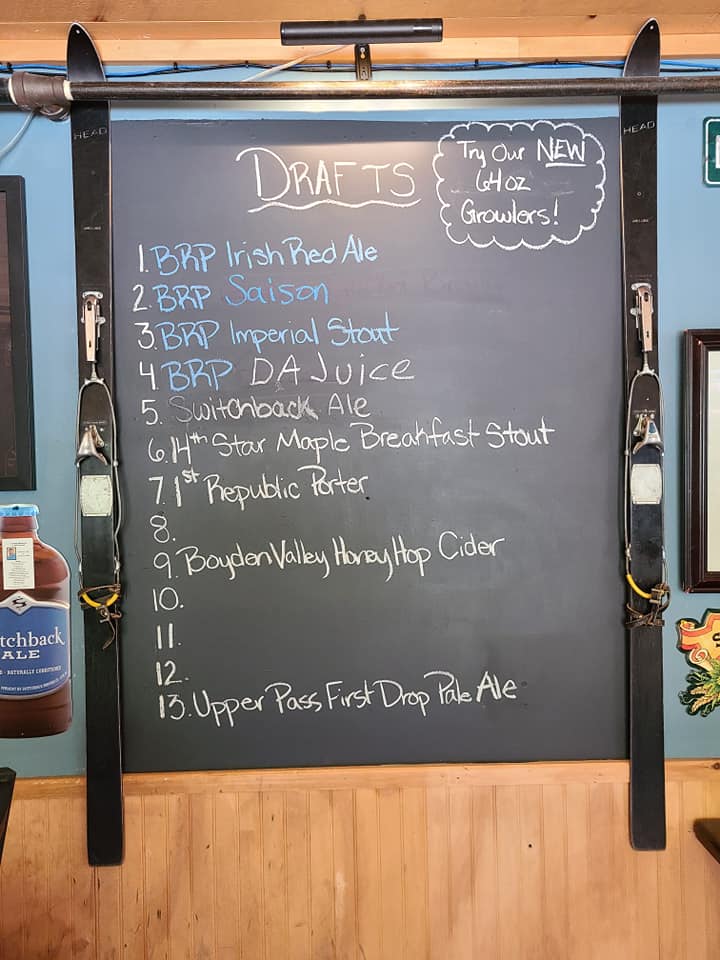 HEAD
HEAD
DRAFTS
Try Our NEW
64 oz
Growlers!
1. BRP Irish Red Ale
2. BRP Saison
3. BRP Imperial Stout
4 BRP DA Juice
5. Switchback Ale
6. 14th Star Maple Breakfast Stout
7. 1st Republic Porter
8.
9. Boyden Valley Honey Hop Cider
10.
11.
12.
13. Upper Pass First Drop Pale Ale
tchback
ALE
NATURALLY CONDITIONED